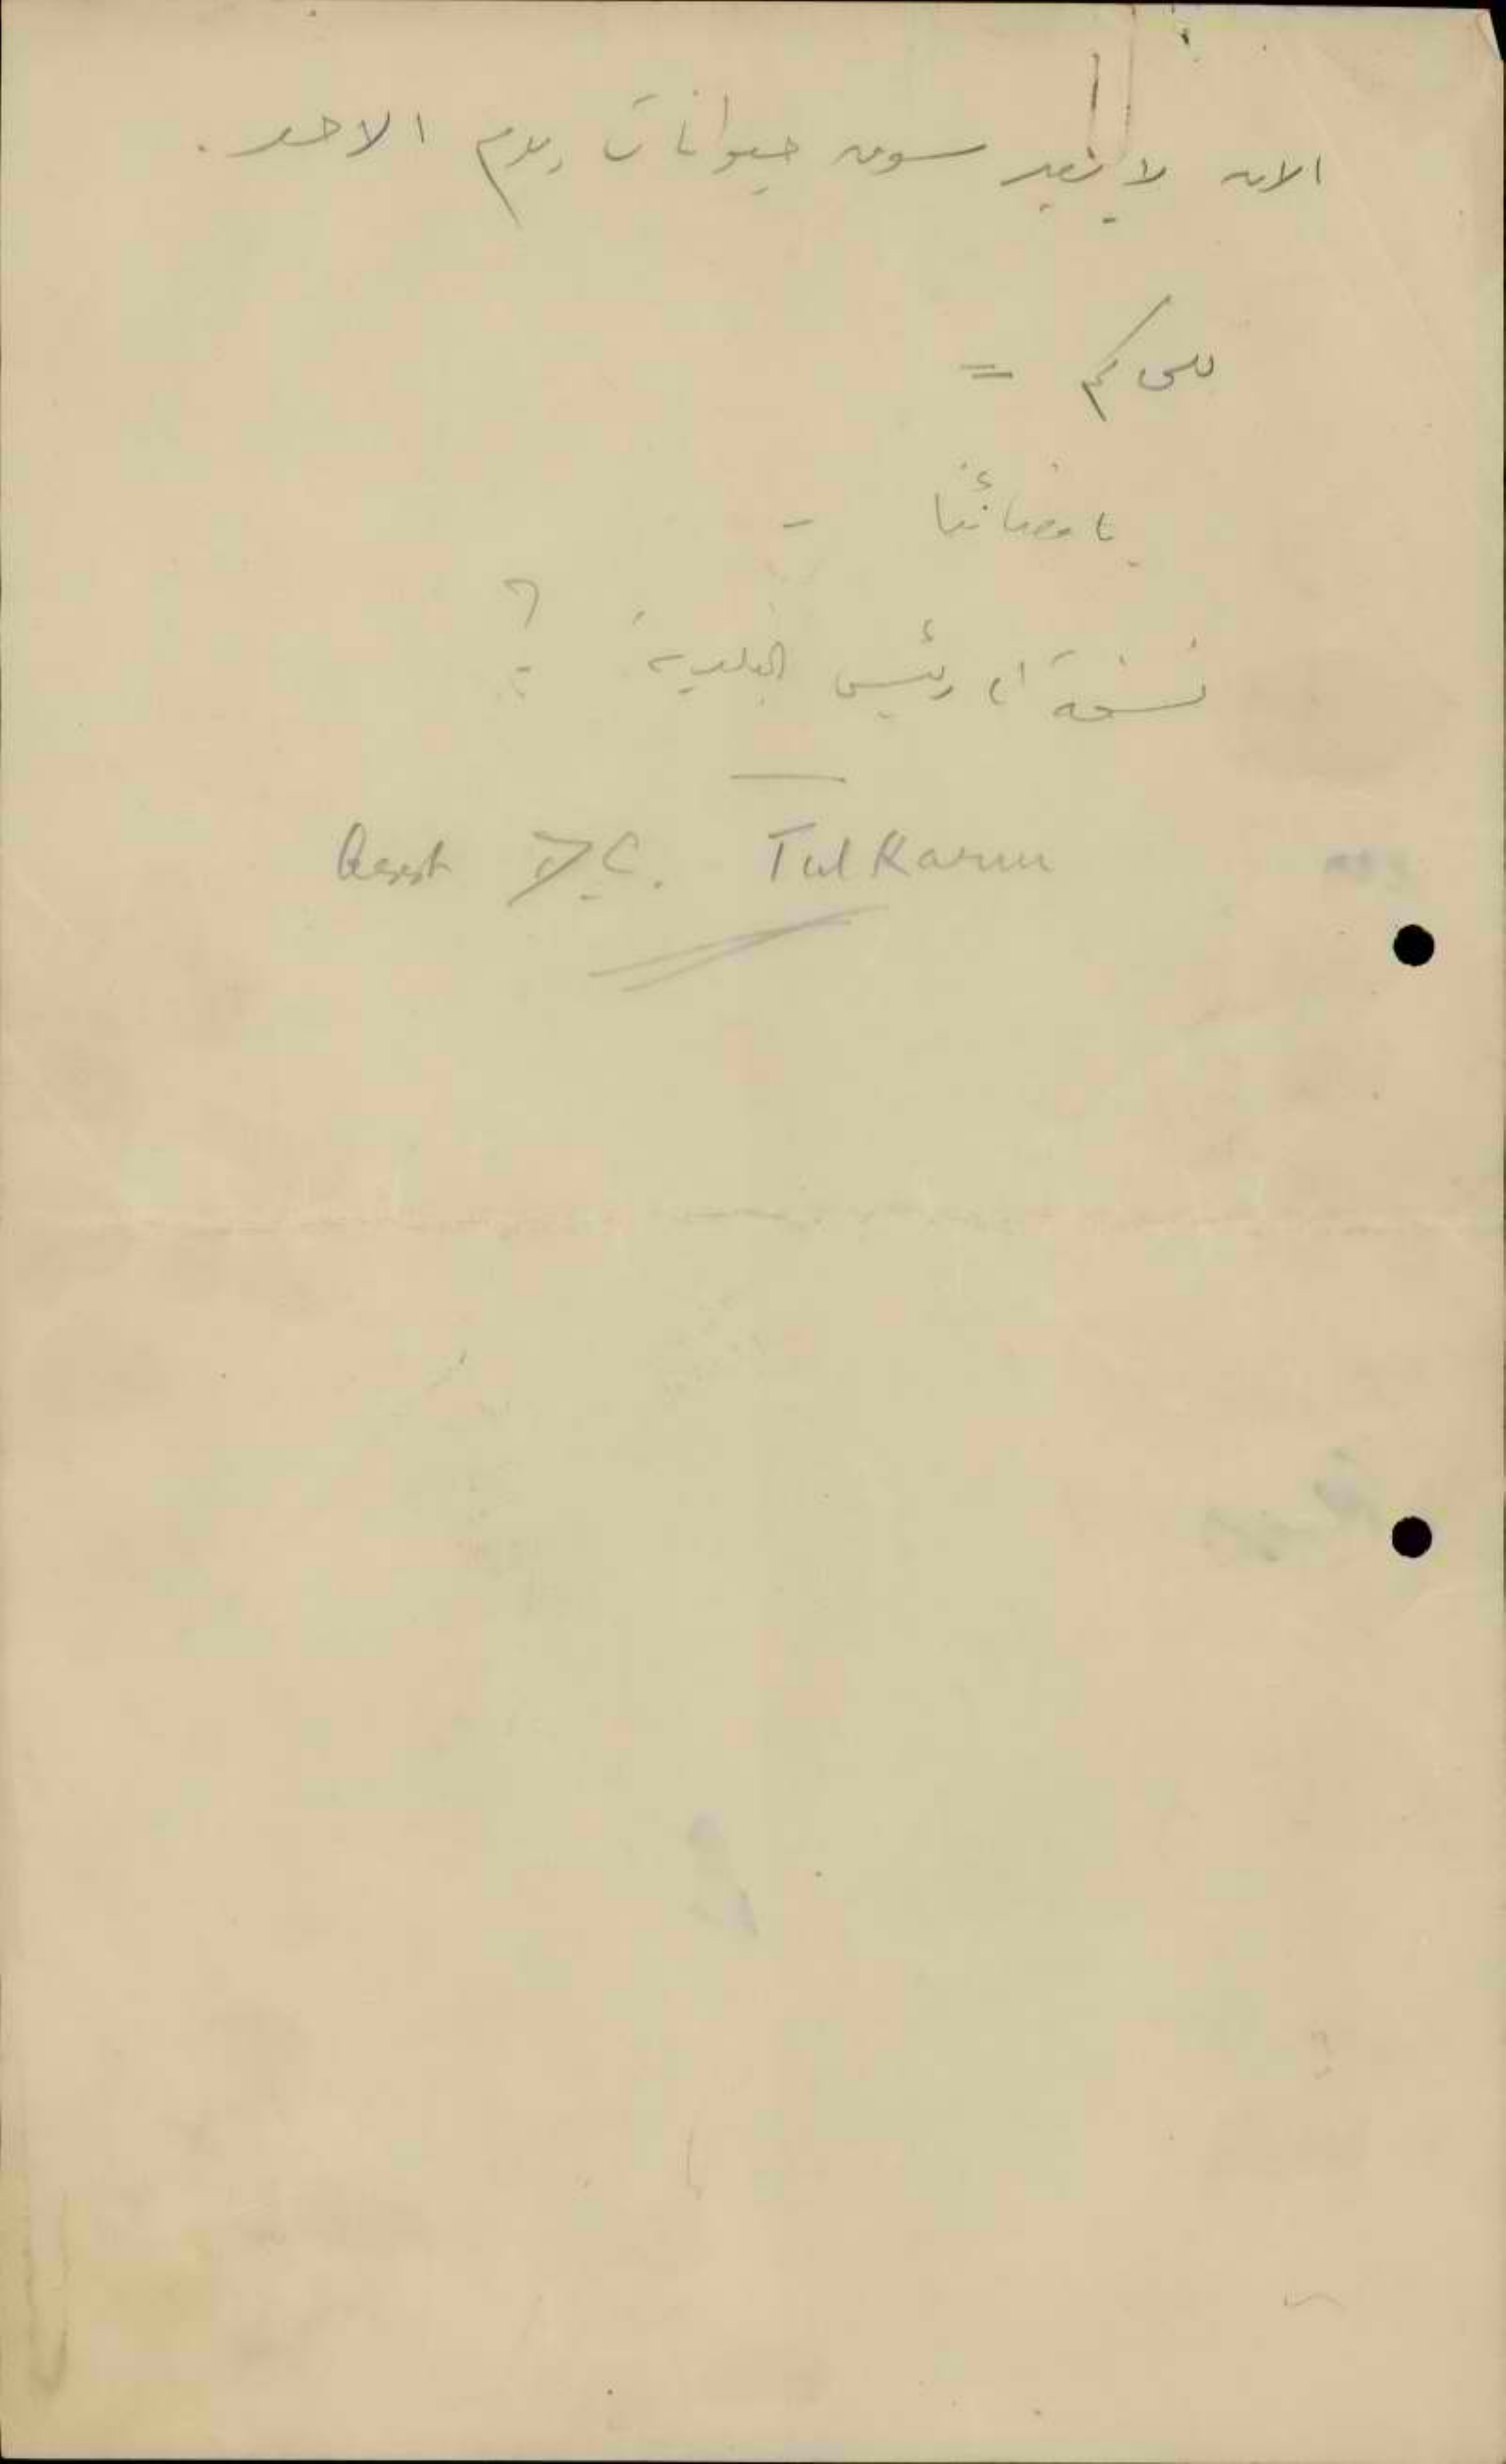 الان لا يصير سوق حيوانات يوم الاحد .
كم =
بامضائنا -
نسخة الى رئيس البلدية ؟
Asst D.C. Tulkarm